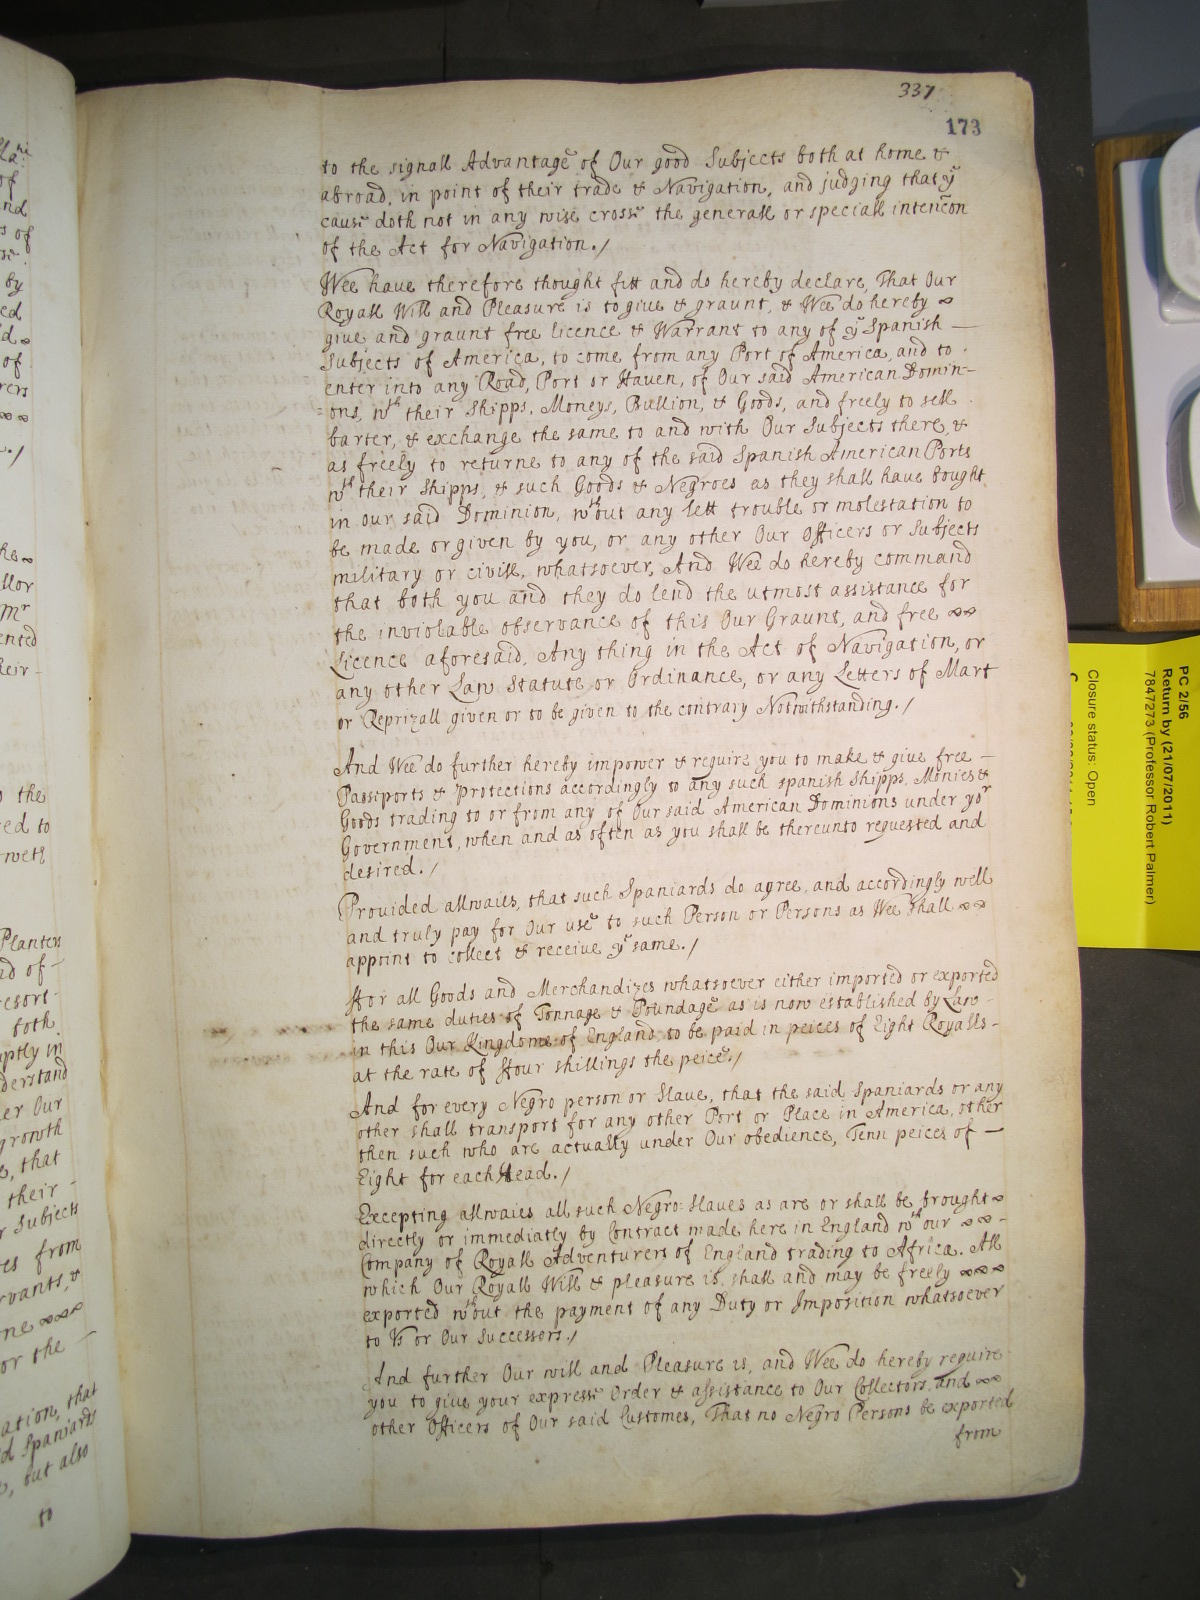 337
173
to the signall Advantage of Our good Subjects both at home &
abroad, in point of their trade & Navigation, and judging that ye
cause doth not in any wise crosse the generall or speciall intencõn
of the Act for Navigation./
Wee have therefore thought fitt and do hereby declare, That Our
Royall Will and Pleasure is to give & graunt, & Wee do hereby
give and graunt free licence & Warrant to any of ye Spanish
Subjects of America, to come from any Port of America, and to
enter into any Road, Port or Haven, of Our said American Domin-
=ons, wth their Shipps, Moneys, Bullion, & Goods, and freely to sell
barter, & exchange the same to and with Our Subjects there, &
as freely to returne to any of the said Spanish American Ports
wth their Shipps, & such Goods & Negroes as they shall have bought
in our said Dominion, wthout any lett trouble or molestation to
be made or given by you, or any other Our Officers or Subjects
military or civill, whatsoever, And Wee do hereby command
that both you and they do lend the utmost assistance for
the inviolable observance of this Our Graunt, and free
Licence aforesaid, Any thing in the Act of Navigation, or
any other Law Statute or Ordinance, or any Letters of Mart
or Reprizall given or to be given to the contrary Notwithstanding./
And Wee do further hereby impower & require you to make & give free
Passports & Protections accordingly to any such spanish Shipps, Monies &
Goods trading to or from any of Our said American Dominions under yor
Government, when and as often as you shall be thereunto requested and
desired./
Provided allwaies, that such Spaniards do agree, and accordingly well
and truly pay for Our use to such Person or Persons as Wee shall
appoint to collect & receive ye same./
ffor all Goods and Merchandizes whatsoever either imported or exported
the same duties of Tonnage & Poundage as is now established by Law
in this Our Kingdome of England to be paid in peices of Eight Royalls
at the rate of ffour shillings the peice./
And for every Negro person or Slave, that the said Spaniards or any
other shall transport for any other Port or Place in America, other
then such who are actually under Our obedience, Tenn peices of
Eight for each Head./
Excepting allwaies all such Negro-Slaves as are or shall be brought
directly or immediatly by Contract made here in England wth our
Company of Royall Adventurers of England trading to Africa. All
which Our Royall Will & pleasure is, shall and may be freely
exported wthout the payment of any Duty or Imposition whatsoever
to Us or Our Successors./
And further Our will and Pleasure is, and Wee do hereby require
you to give your expresse Order & assistance to Our Collectors, and
other Officers of Our said Customes, That no Negro Persons be exported
from
PC 2/56
Return by (21/07/2011)
7847273 (Professor Robert Palmer)
Closure status: Open